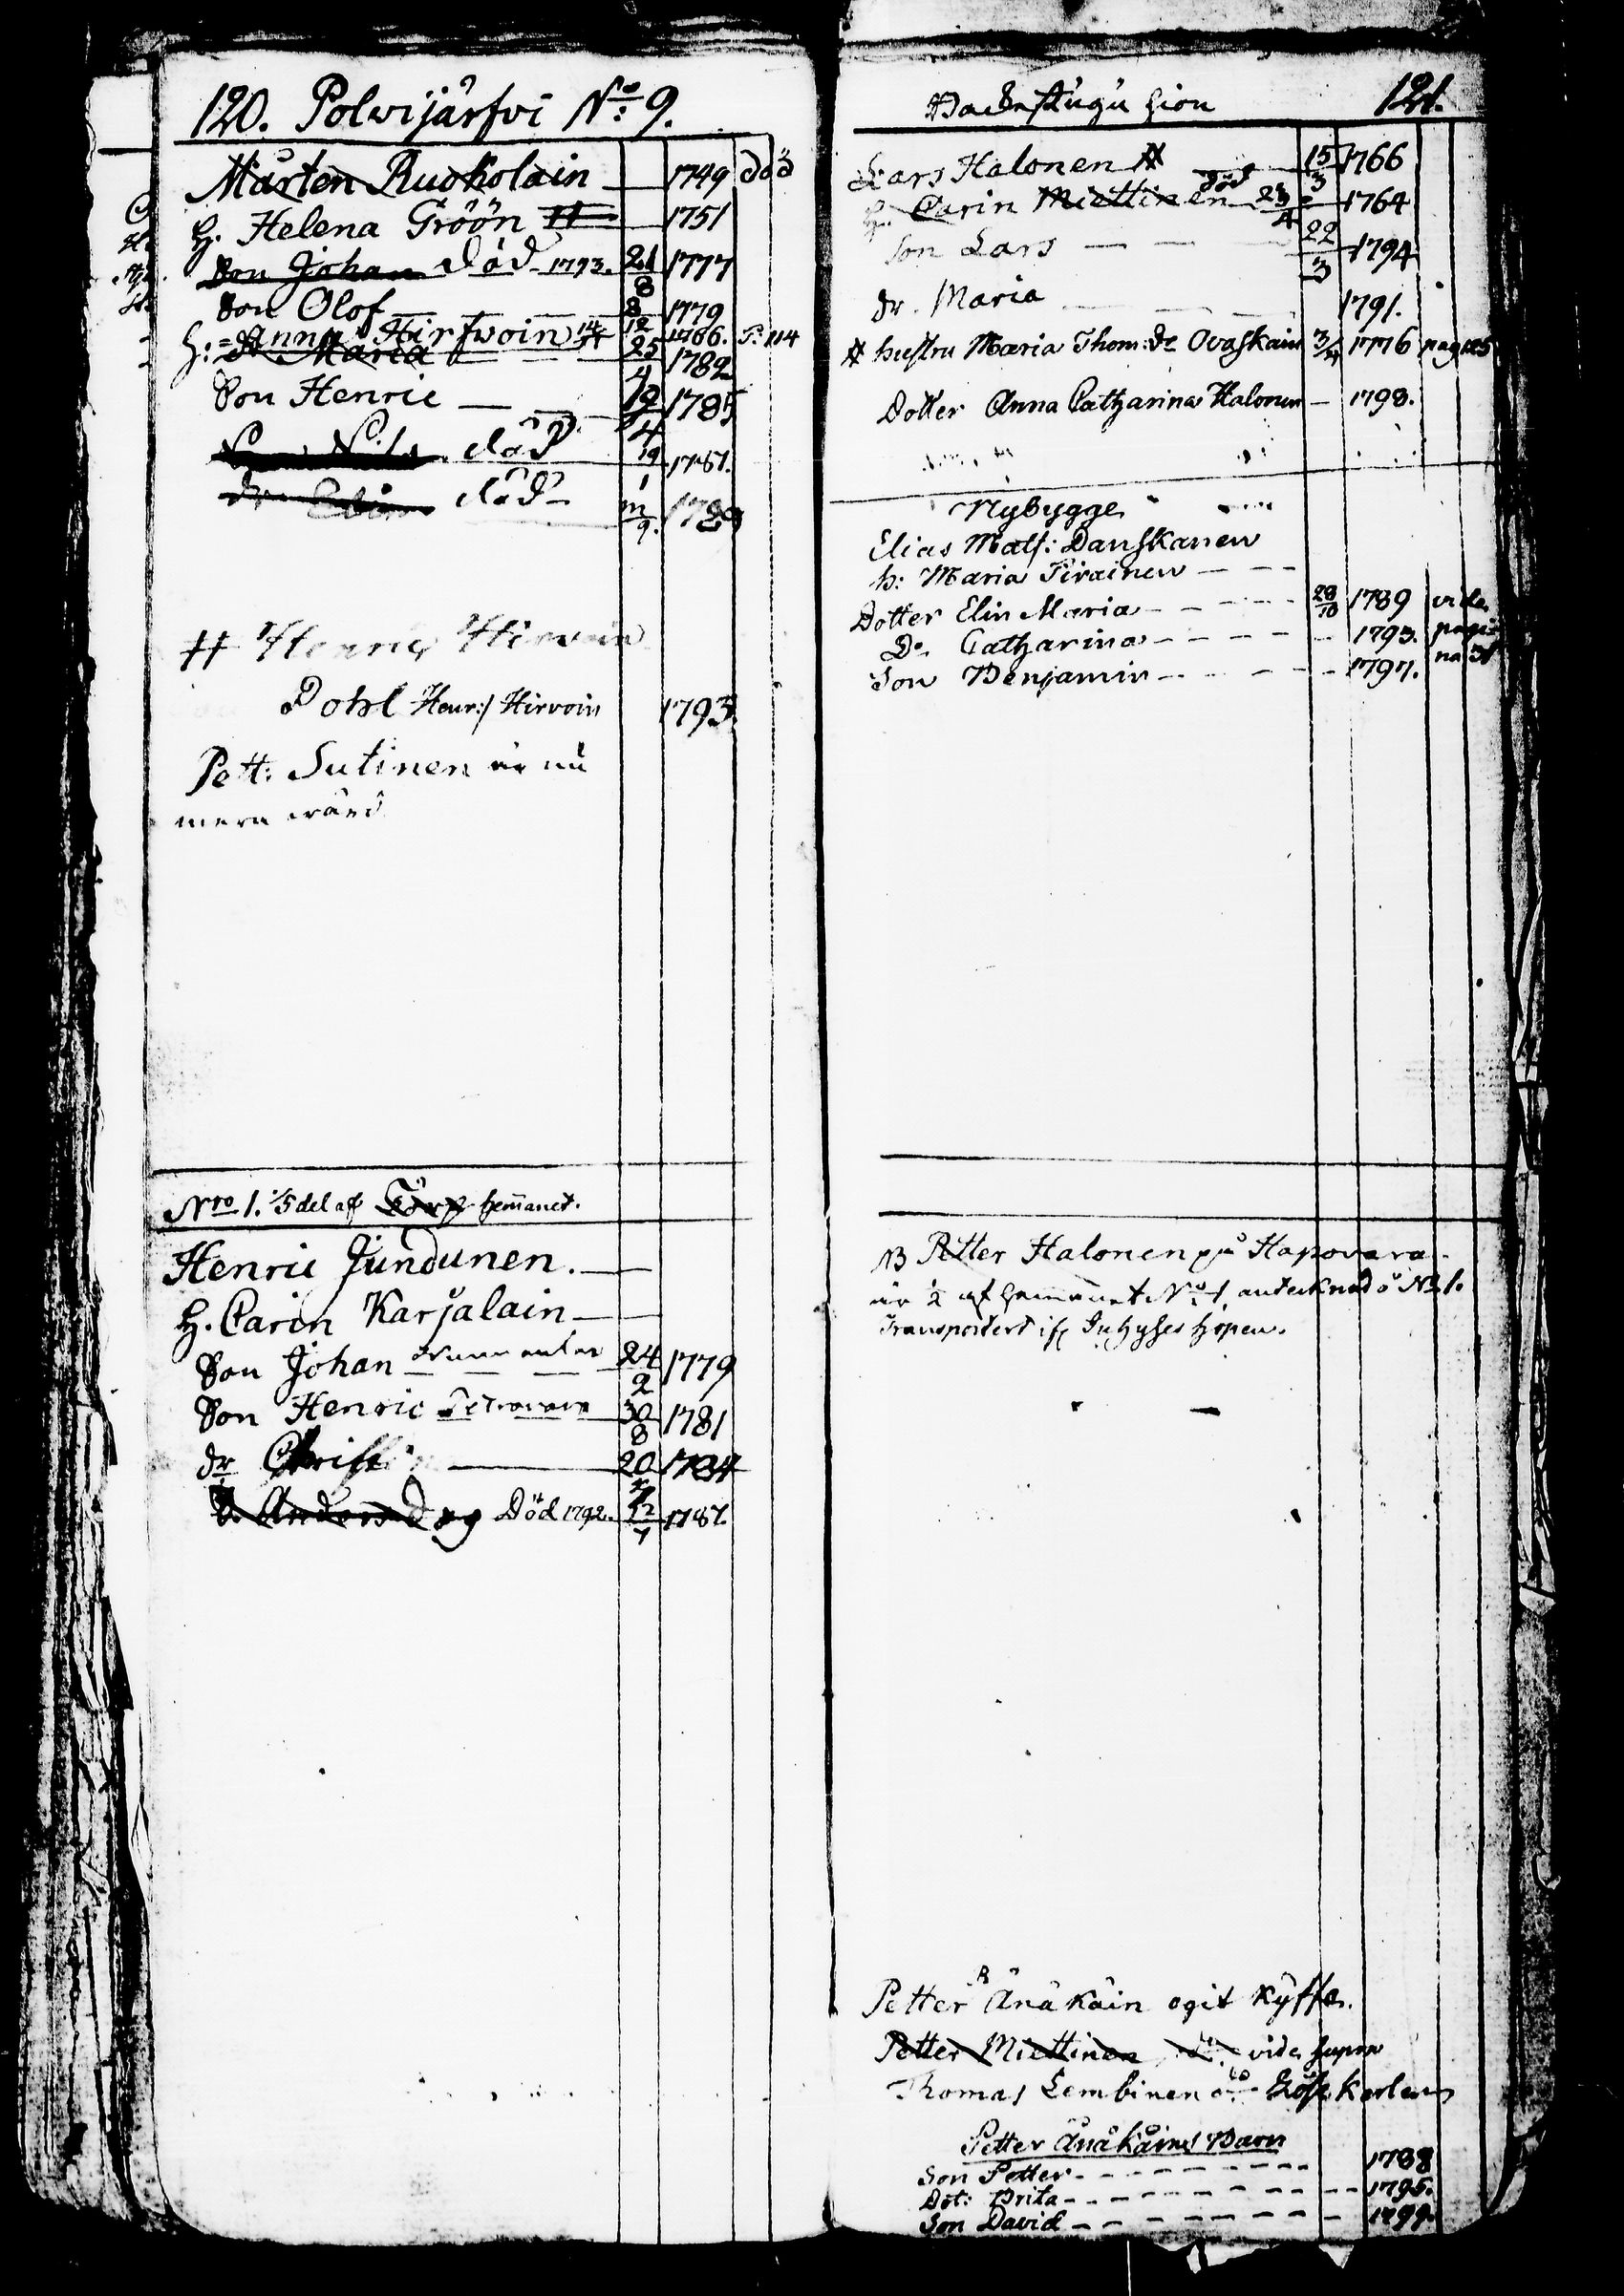 120. Polwijärfvi No: 9.
Mårten Ruokolain 1749 död
H. Helena Gröön # 1751
Son Johan död 1793. 21/8 1777
Son Olof 8/12 1779
H: Anna Hirfwoin 1786. P: 114
Dr Maria 25/4 1782
Son Henric 19/4 1785
Son Nils död 19/1 1787.
dr död 9. 1789
# Henric Hirvoin
Dohl Henr:s Hirvoin 1793.
Pett: Sutinen är nu
mera
Nro 1. 1/5 del af Törp hem̄anet.
Henric Jundunen.
H. Carin Karjalain
Son Johan 24/2 1779
Son Henric 30/8 1781
dr Christin 20 1784
S. Anders Död 1792. 12 1787.
121.
Backstugu hion
Lars Halonen # 15/3 1766
H. Carin Miettinen död 23/4 1764
Son Lars 22/3 1794
dr. Maria 1791.
# hustru Maria Thom: dr Ovaskain 3/4 1776 pag 125
Dotter Anna Catharina Halonen 1798.
Nybygge
Elias Mats: Danskanen
h: Maria Pirainen
Dotter Elin Maria 28/10 1789 vide
Do Catharina 1793. pagi-
Son Benjamin 1797. na 31
NB Petter Halonen på Hapovara
är å af hem̄anet No 1, antecknad å No 1.
Transporterd
Petter Änäkäin
Petter Miettinen vide supra
Thomas Lembinen
Petter Änäkäins Barn
Son Petter 1788
Dot: Brita 1795.
Son David 1799.